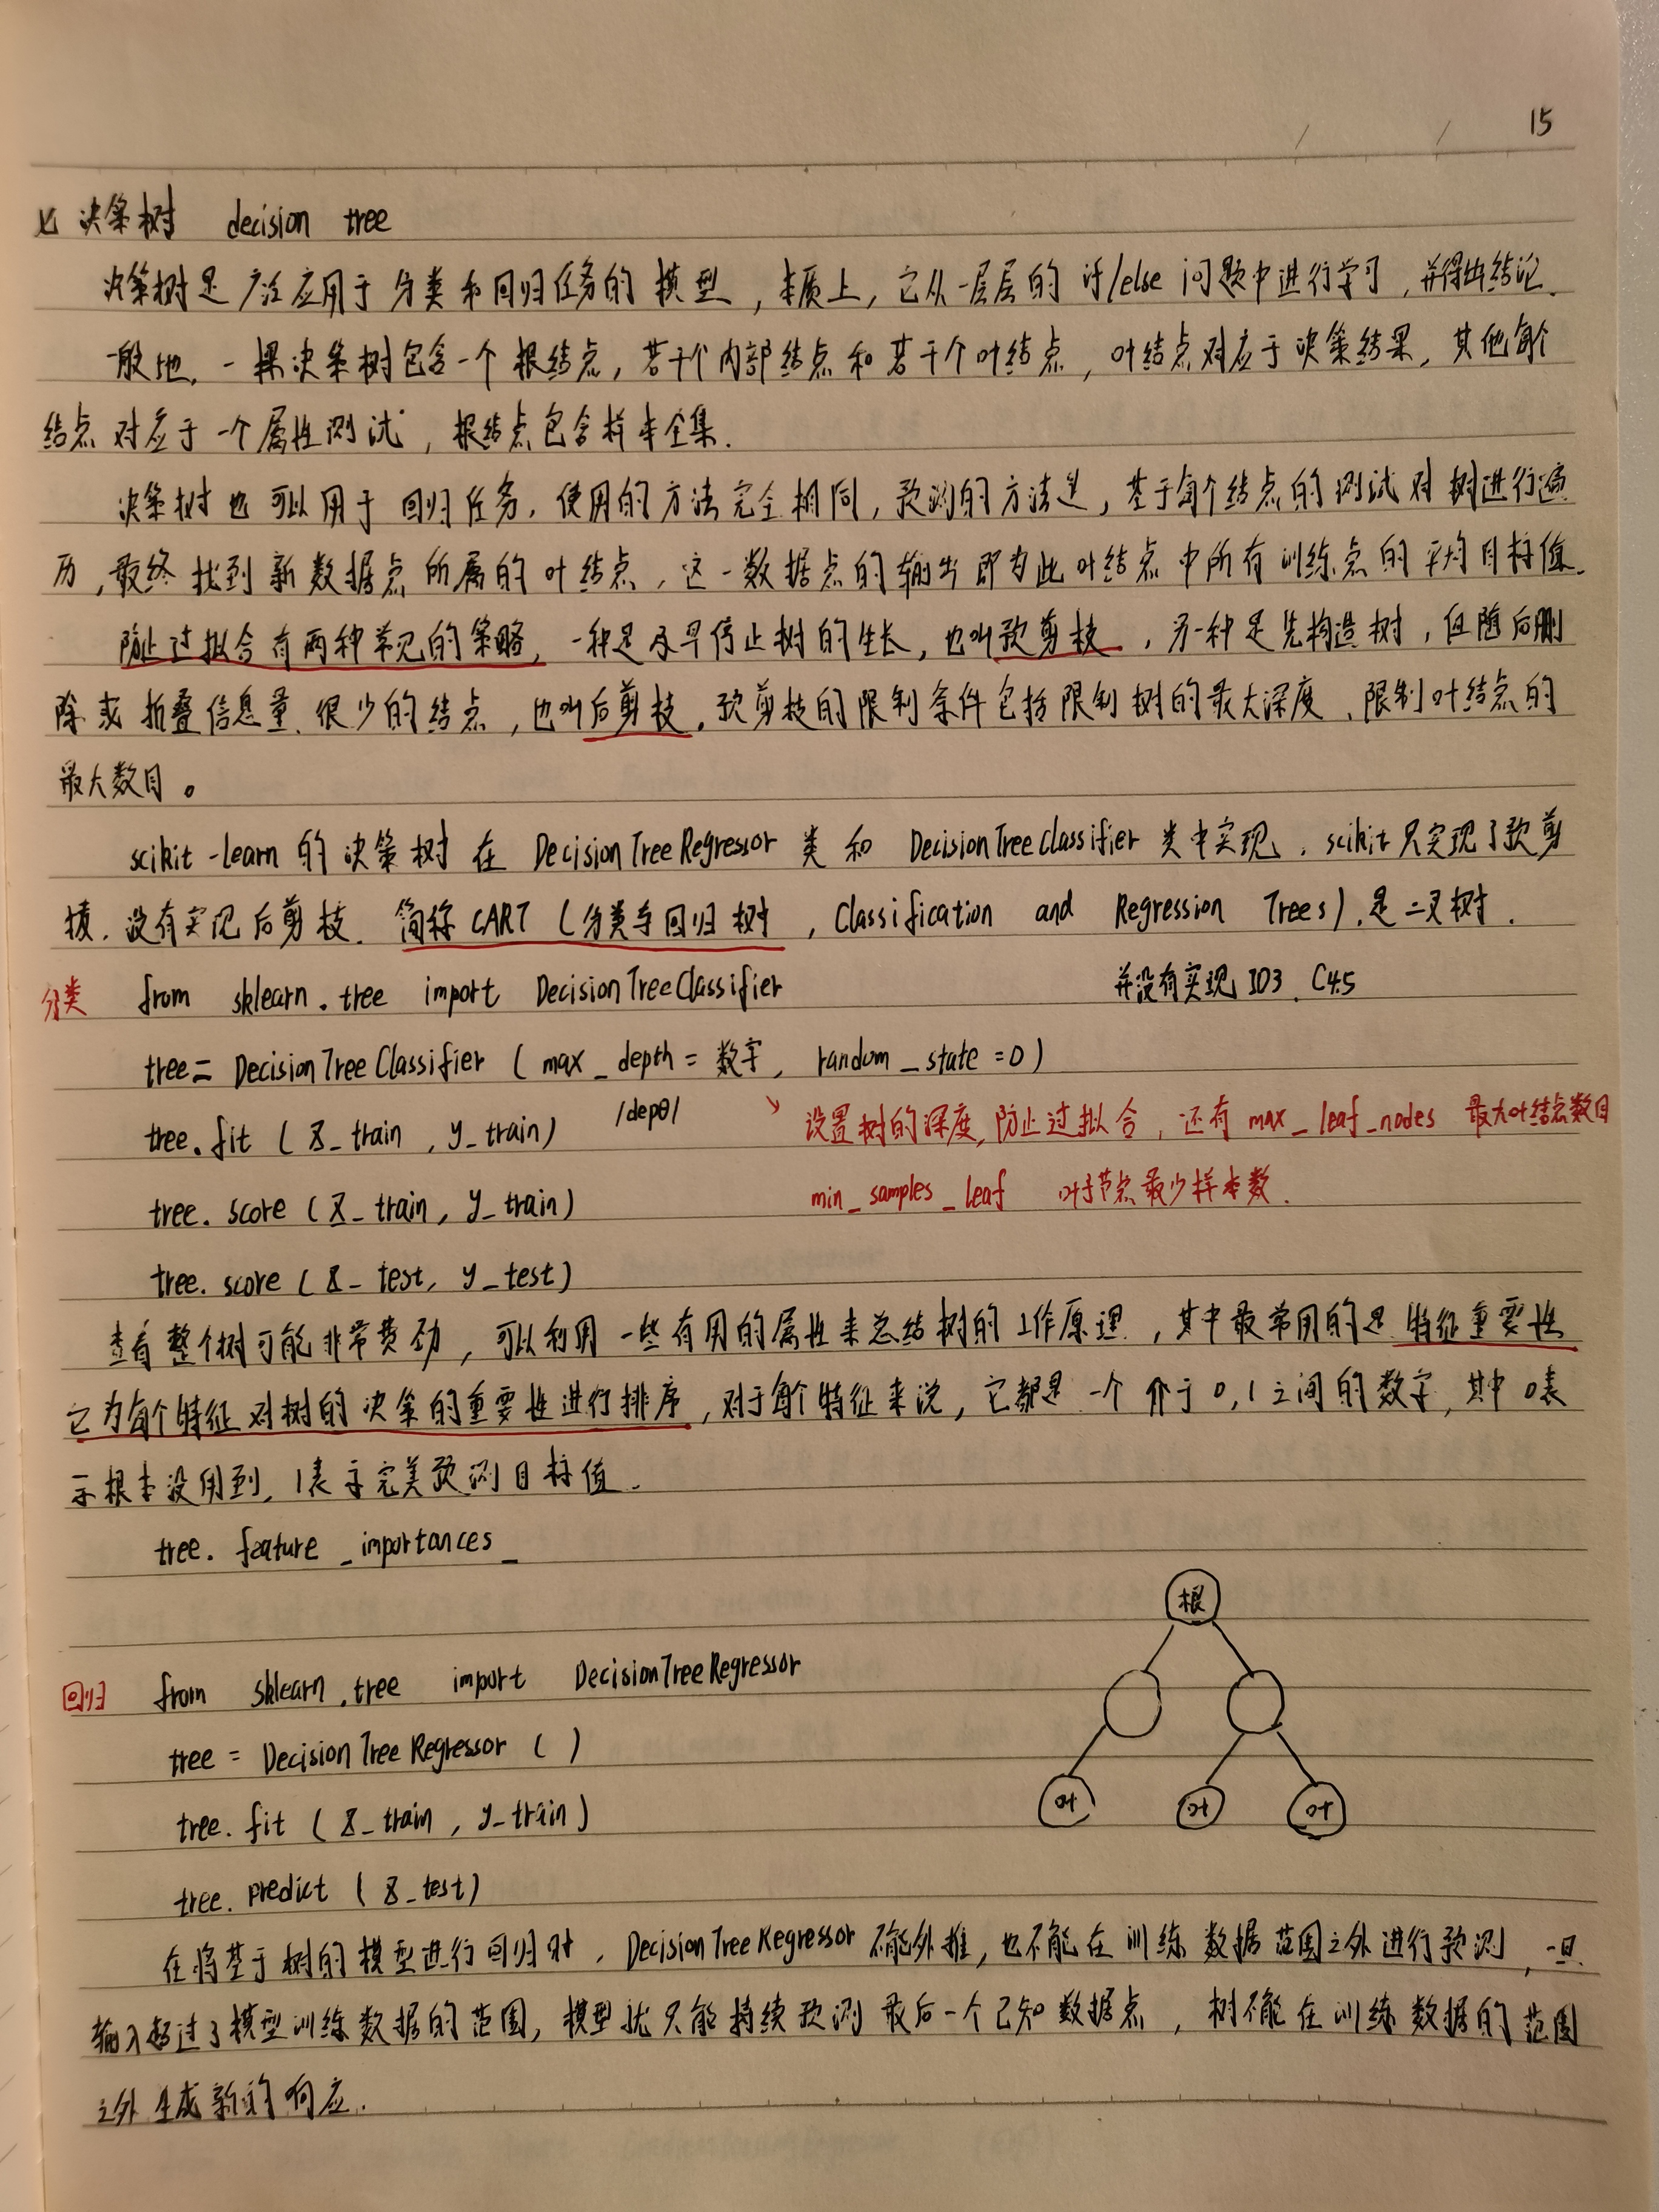 15
决策树 decision tree
决策树是广泛应用于分类和回归任务的模型，本质上，它从一层层的 if/else 问题中进行学习，并得出结论.
一般地，一棵决策树包含一个根结点，若干个内部结点和若干个叶结点，叶结点对应于决策结果，其他每个
结点对应于一个属性测试，根结点包含样本全集.
决策树也可以用于回归任务，使用的方法完全相同，预测的方法是，基于每个结点的测试对树进行遍
历，最终找到新数据点所属的叶结点，这一数据点的输出即为此叶结点中所有训练点的平均目标值.
防止过拟合有两种常见的策略，一种是及早停止树的生长，也叫预剪枝，另一种是先构造树，但随后删
除或折叠信息量很少的结点，也叫后剪枝，预剪枝的限制条件包括限制树的最大深度、限制叶结点的
最大数目。
scikit-learn 的决策树在 DecisionTreeRegressor 类和 DecisionTreeClassifier 类中实现，scikit只实现了预剪
枝，没有实现后剪枝. 简称 CART (分类与回归树，Classification and Regression Trees)，是二叉树.
分类 from sklearn.tree import DecisionTreeClassifier 并没有实现 ID3、C4.5
tree = DecisionTreeClassifier ( max_depth = 数字, random_state = 0 )
tree.fit ( X_train , y_train ) /depθ/ ↘ 设置树的深度，防止过拟合，还有 max_leaf_nodes 最大叶结点数目
tree.score ( X_train, y_train ) min_samples_leaf 叶子节点最少样本数.
tree.score ( X_test, y_test )
查看整个树可能非常费劲，可以利用一些有用的属性来总结树的工作原理，其中最常用的是特征重要性
它为每个特征对树的决策的重要性进行排序，对于每个特征来说，它都是一个介于0,1之间的数字，其中0表
示根本没用到，1表示完美预测目标值.
tree.feature_importances_
根
回归 from sklearn.tree import DecisionTreeRegressor
tree = DecisionTreeRegressor ( )
tree.fit ( X_train , y_train )
叶 叶 叶
tree.predict ( X_test)
在将基于树的模型进行回归时，DecisionTreeRegressor 不能外推，也不能在训练数据范围之外进行预测，一旦
输入超过了模型训练数据的范围，模型就只能持续预测最后一个已知数据点，树不能在训练数据的范围
之外生成新的响应.